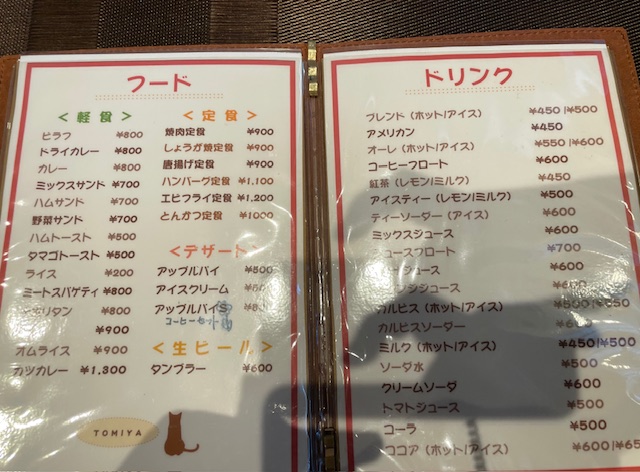 フード
<軽食>
ピラフ ¥800
ドライカレー ¥800
カレー ¥800
ミックスサンド ¥700
ハムサンド ¥700
野菜サンド ¥700
ハムトースト ¥500
タマゴトースト ¥500
ライス ¥200
ミートスパゲティ ¥800
¥800
¥900
オムライス ¥900
カツカレー ¥1,300
TOMIYA
<定食>
焼肉定食 ¥900
しょうが焼定食 ¥900
唐揚げ定食 ¥900
ハンバーグ定食 ¥1,100
エビフライ定食 ¥1,200
とんかつ定食 ¥1000
<デザート>
アップルパイ ¥500
アイスクリーム
アップルパイS
コーヒーセット
<生ビール>
タンブラー ¥600
ドリンク
ブレンド (ホット/アイス) ¥450/¥500
アメリカン ¥450
オーレ (ホット/アイス) ¥550/¥600
コーヒーフロート ¥600
紅茶 (レモン/ミルク) ¥450
アイスティー (レモン/ミルク) ¥500
ティーソーダー (アイス) ¥600
ミックスジュース ¥600
ュースフロート ¥700
ュース ¥600
ジュース ¥600
カルピス (ホット/アイス)
カルピスソーダー
ミルク (ホット/アイス) ¥450/¥500
ソーダ水 ¥500
クリームソーダ ¥600
トマトジュース ¥500
コーラ ¥500
ココア (ホット/アイス) ¥600/¥65